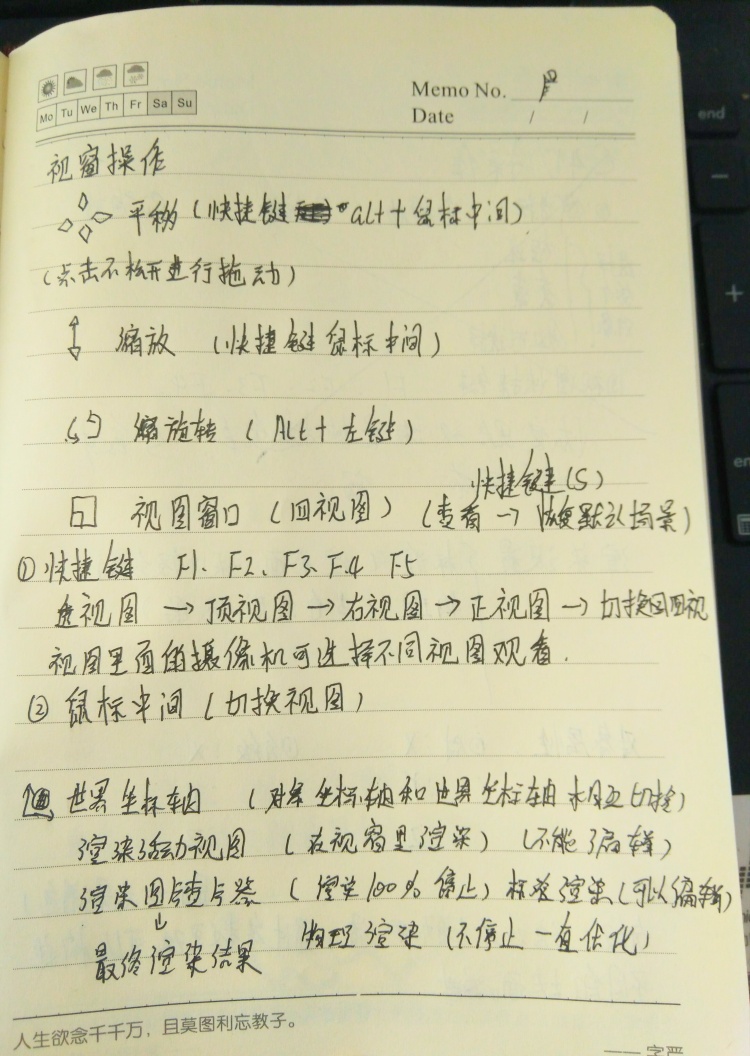 Mo Tu We Th Fr Sa Su
Memo No.
Date / /
视窗操作
平移(快捷键 alt+鼠标中间)
(点击不松开进行拖动)
缩放 (快捷键鼠标中间)
旋转 (Alt+左键)
快捷键(S)
视图窗口 (四视图) (查看→恢复默认场景)
①快捷键 F1、F2、F3、F4 F5
透视图→顶视图→右视图→正视图→切换四视
视图里面的摄像机可选择不同视图观看.
②鼠标中间(切换视图)
世界坐标轴 (对象坐标轴和世界坐标轴相互切换)
渲染活动视图 (在视窗里渲染) (不能编辑)
渲染图片查看器 (渲染100%停止) 标准渲染(可以编辑)
最终渲染结果 物理渲染 (不停止一直优化)
人生欲念千千万,且莫图利忘教子。
end